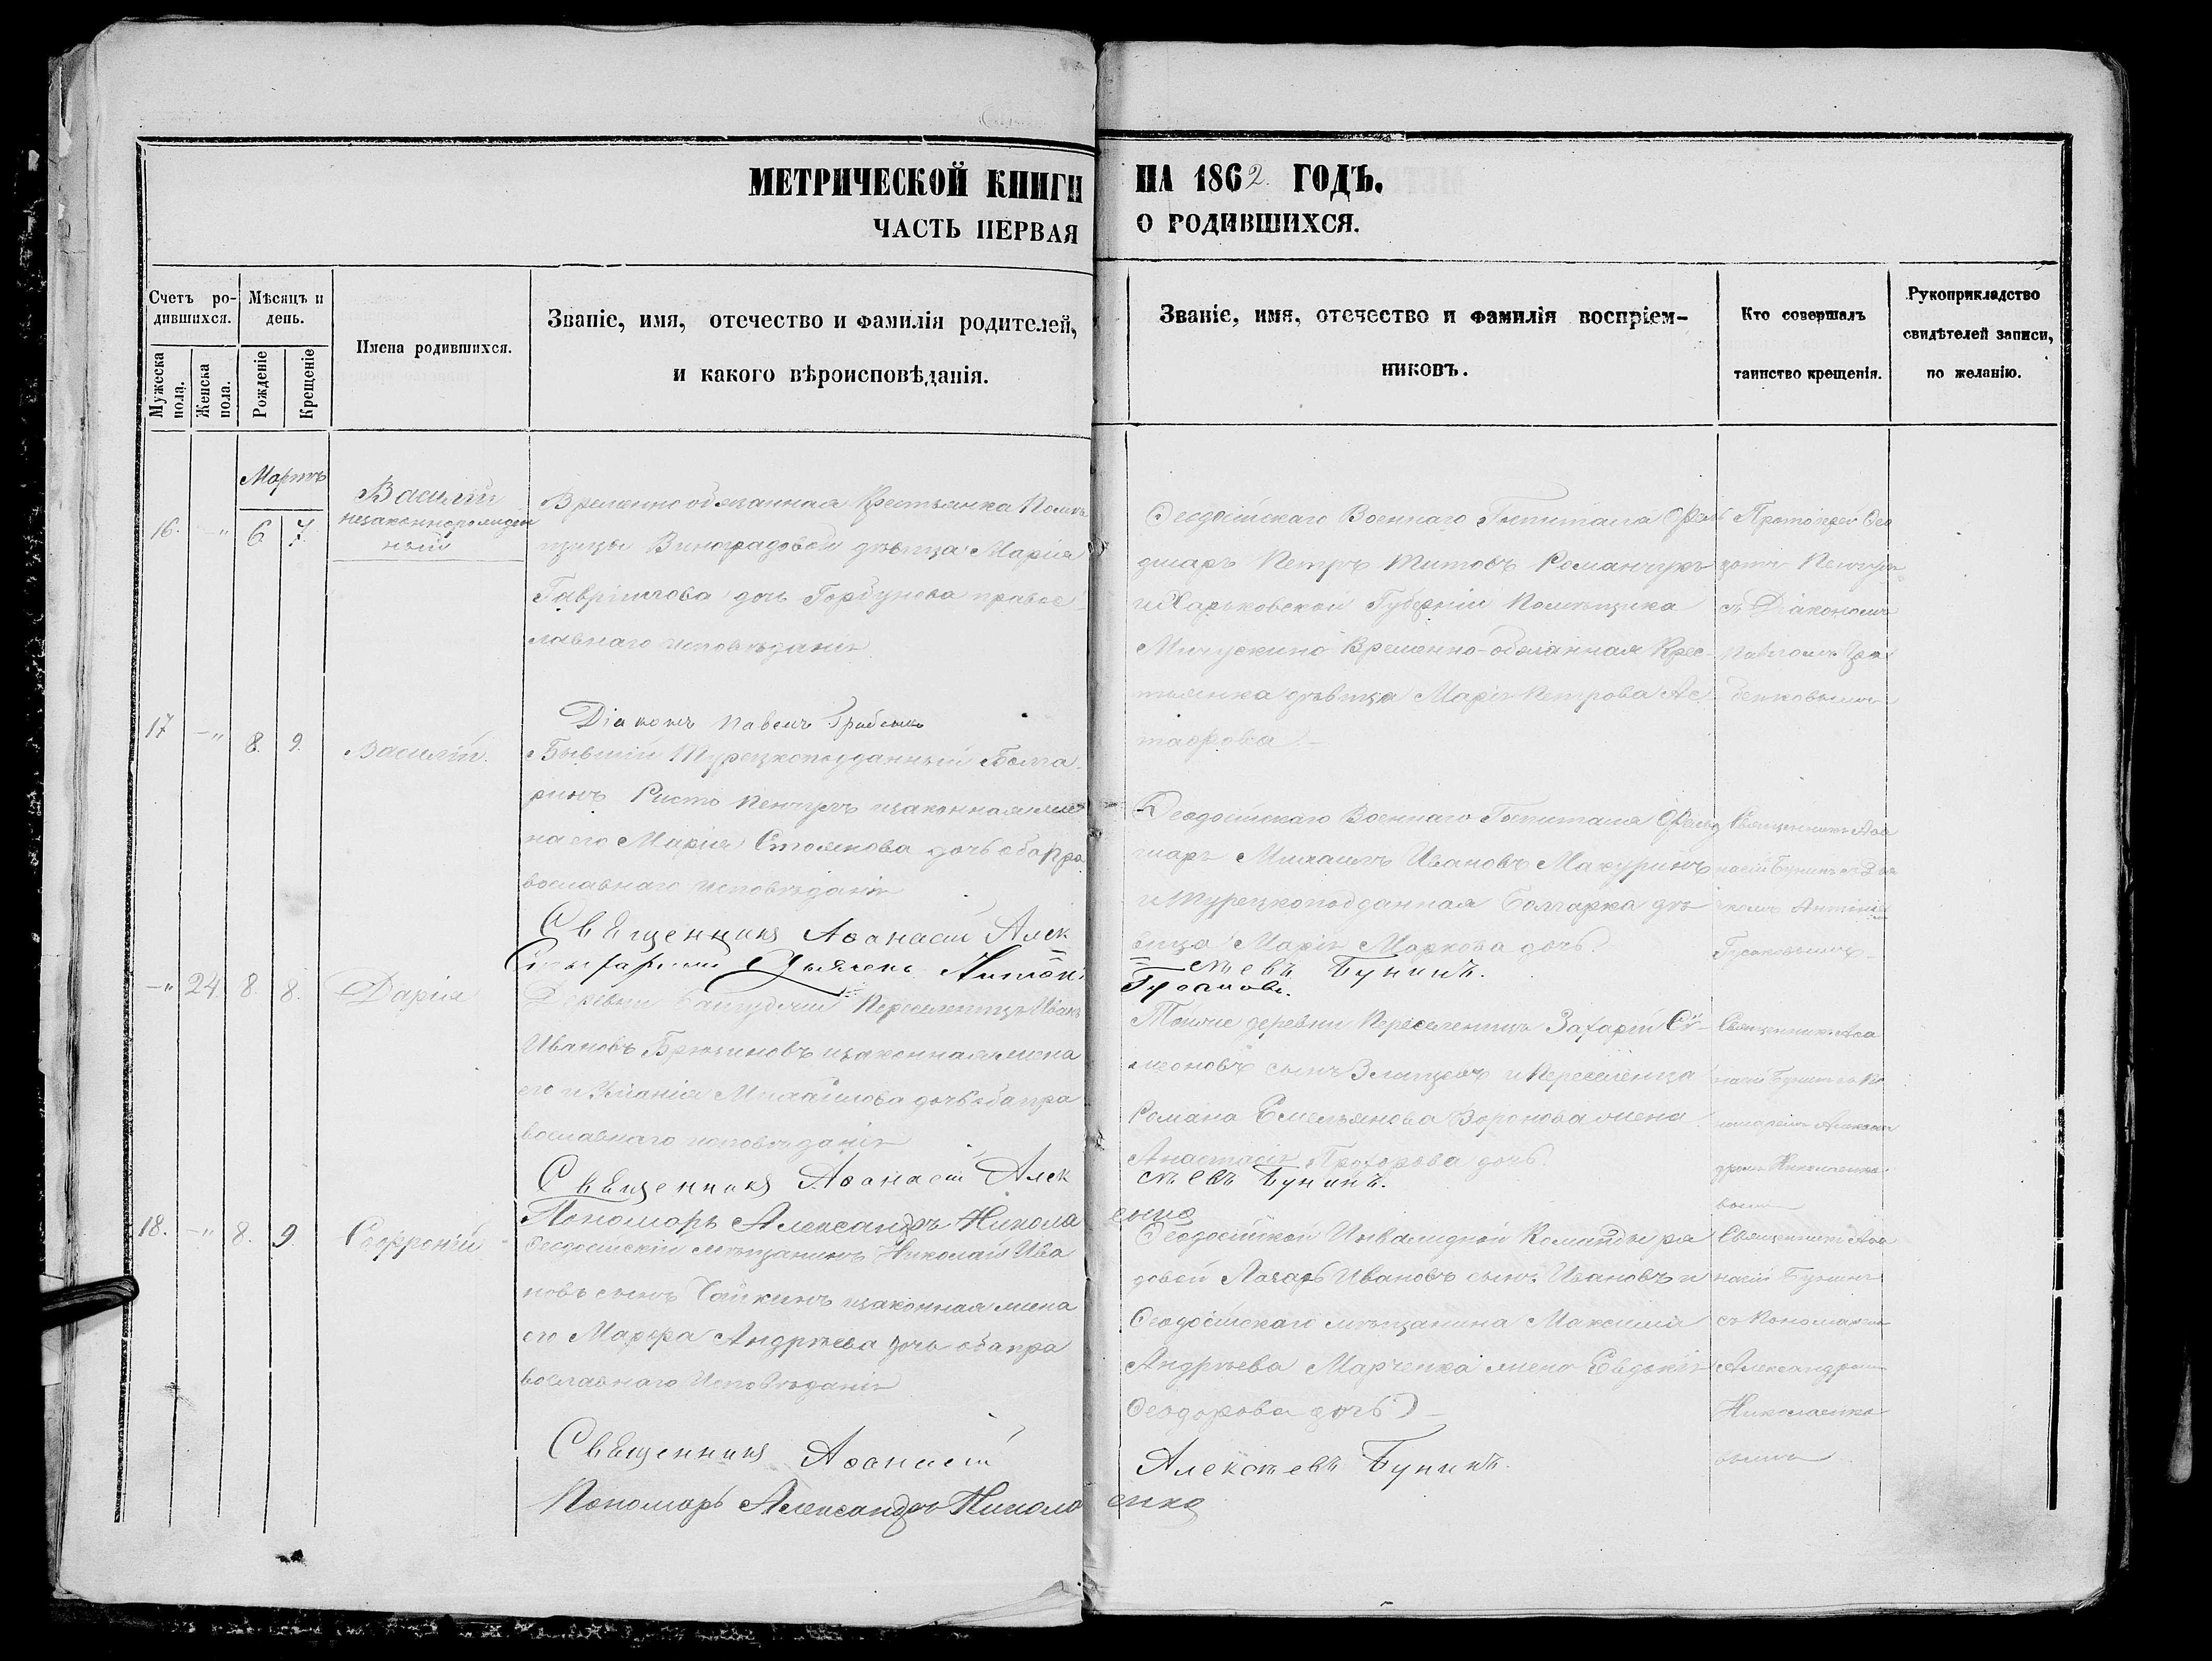 МЕТРИЧЕСКОЙ КНИГИ НА 1862 ГОДЪ.
ЧАСТЬ ПЕРВАЯ О РОДИВШИХСЯ.
Счетъ родившихся.
Мужеска пола.
Женска пола.
Мѣсяцъ и день.
Рожденіе
Крещеніе
Имена родившихся.
Званіе, имя, отечество и фамилія родителей,
и какого вѣроисповѣданія.
Званіе, имя, отечество и фамилія воспріем-
никовъ.
Кто совершалъ
таинство крещенія.
Рукоприкладство
свидѣтелей записи,
по желанію.
Мартъ
16. -„ 6 7
Василій
незаконнорожден
ный
Временно обязанная Крестьянка Помѣ
щицы Виноградовой дѣвица Марія
Гавріилова дочь Горбунова правос
лавнаго исповѣданія
Ѳеодосійскаго Военнаго Госпиталя Фель
дшаръ Петръ Титовъ Романчукъ
и Харьковской Губерніи Помѣщика
Временно-обязанная Крес-
тьянка дѣвица Марія Петрова
Протоіерей
съ Діакономъ
Павломъ
Діаконъ Павелъ
17 -„ 8. 9.
Василій.
Бывшій Турецкоподданный Болга
ринъ Ристо Пенчулъ изаконная же
на его Марія Стоянова дочь оба Пра
вославнаго исповѣданія
Ѳеодосійскаго Военнаго Госпиталя Фельд
шаръ Михаилъ Ивановъ Макуринъ
и Турецкоподданная Болгарка дѣ
вица Марія Маркова дочь.
Священникъ Аѳа
насій Бунинъ
Антоніемъ
Священникъ Аѳанасій Алек
сѣевъ Бунинъ.
Антоній
-„ 24. 8. 8.
Дарія
Деревни Переселенецъ Иванъ
Ивановъ изаконная жена
его Михайлова дочь оба пра
вославнаго исповѣданія
Тойже деревни Переселенецъ Захарій Си-
меоновъ сынъ и Переселенца
Романа Емельянова Воронова жена
Анастасія Прохорова дочь.
Священникъ Аѳа
насій Бунинъ съ По
номаремъ Алексан
дромъ Николаенко
вымъ
Священникъ Аѳанасій Алек
сѣевъ Бунинъ.
Пономарь Александръ Никола
енко
18. -„ 8. 9
Софроній
Ѳеодосійскій мѣщанинъ Николай Ива
новъ сынъ Чайкинъ изаконная жена
его Марфа Андрѣева дочь оба пра
вославнаго Исповѣданія
Ѳеодосійской Инвалидной Команды ря
довой Лазарь Ивановъ сынъ Ивановъ и
Ѳеодосійскаго мѣщанина Максима
Андрѣева Марченка жена Евдокія
Ѳеодорова дочь
Священникъ Аѳа
насій Бунинъ
съ Пономаремъ
Александромъ
Николаенко
вымъ
Священникъ Аѳанасій
Алексѣевъ Бунинъ.
Пономарь Александръ Никола
енко